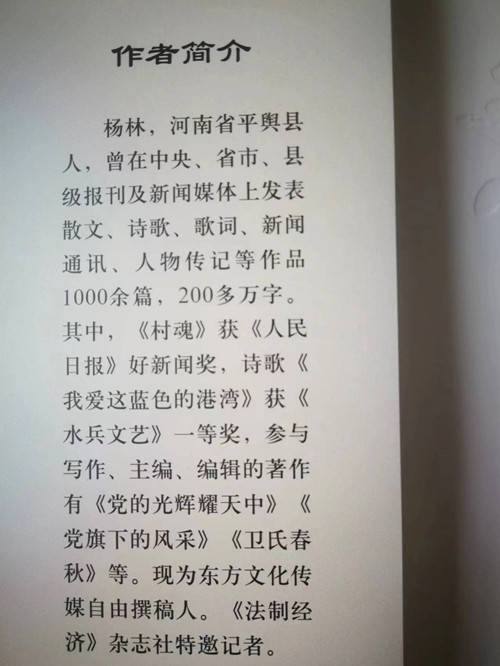 作者简介
杨林，河南省平舆县
人，曾在中央、省市、县
级报刊及新闻媒体上发表
散文、诗歌、歌词、新闻
通讯、人物传记等作品
1000余篇，200多万字。
其中，《村魂》获《人民
日报》好新闻奖，诗歌《
我爱这蓝色的港湾》获《
水兵文艺》一等奖，参与
写作、主编、编辑的著作
有《党的光辉耀天中》《
党旗下的风采》《卫氏春
秋》等。现为东方文化传
媒自由撰稿人。《法制经
济》杂志社特邀记者。